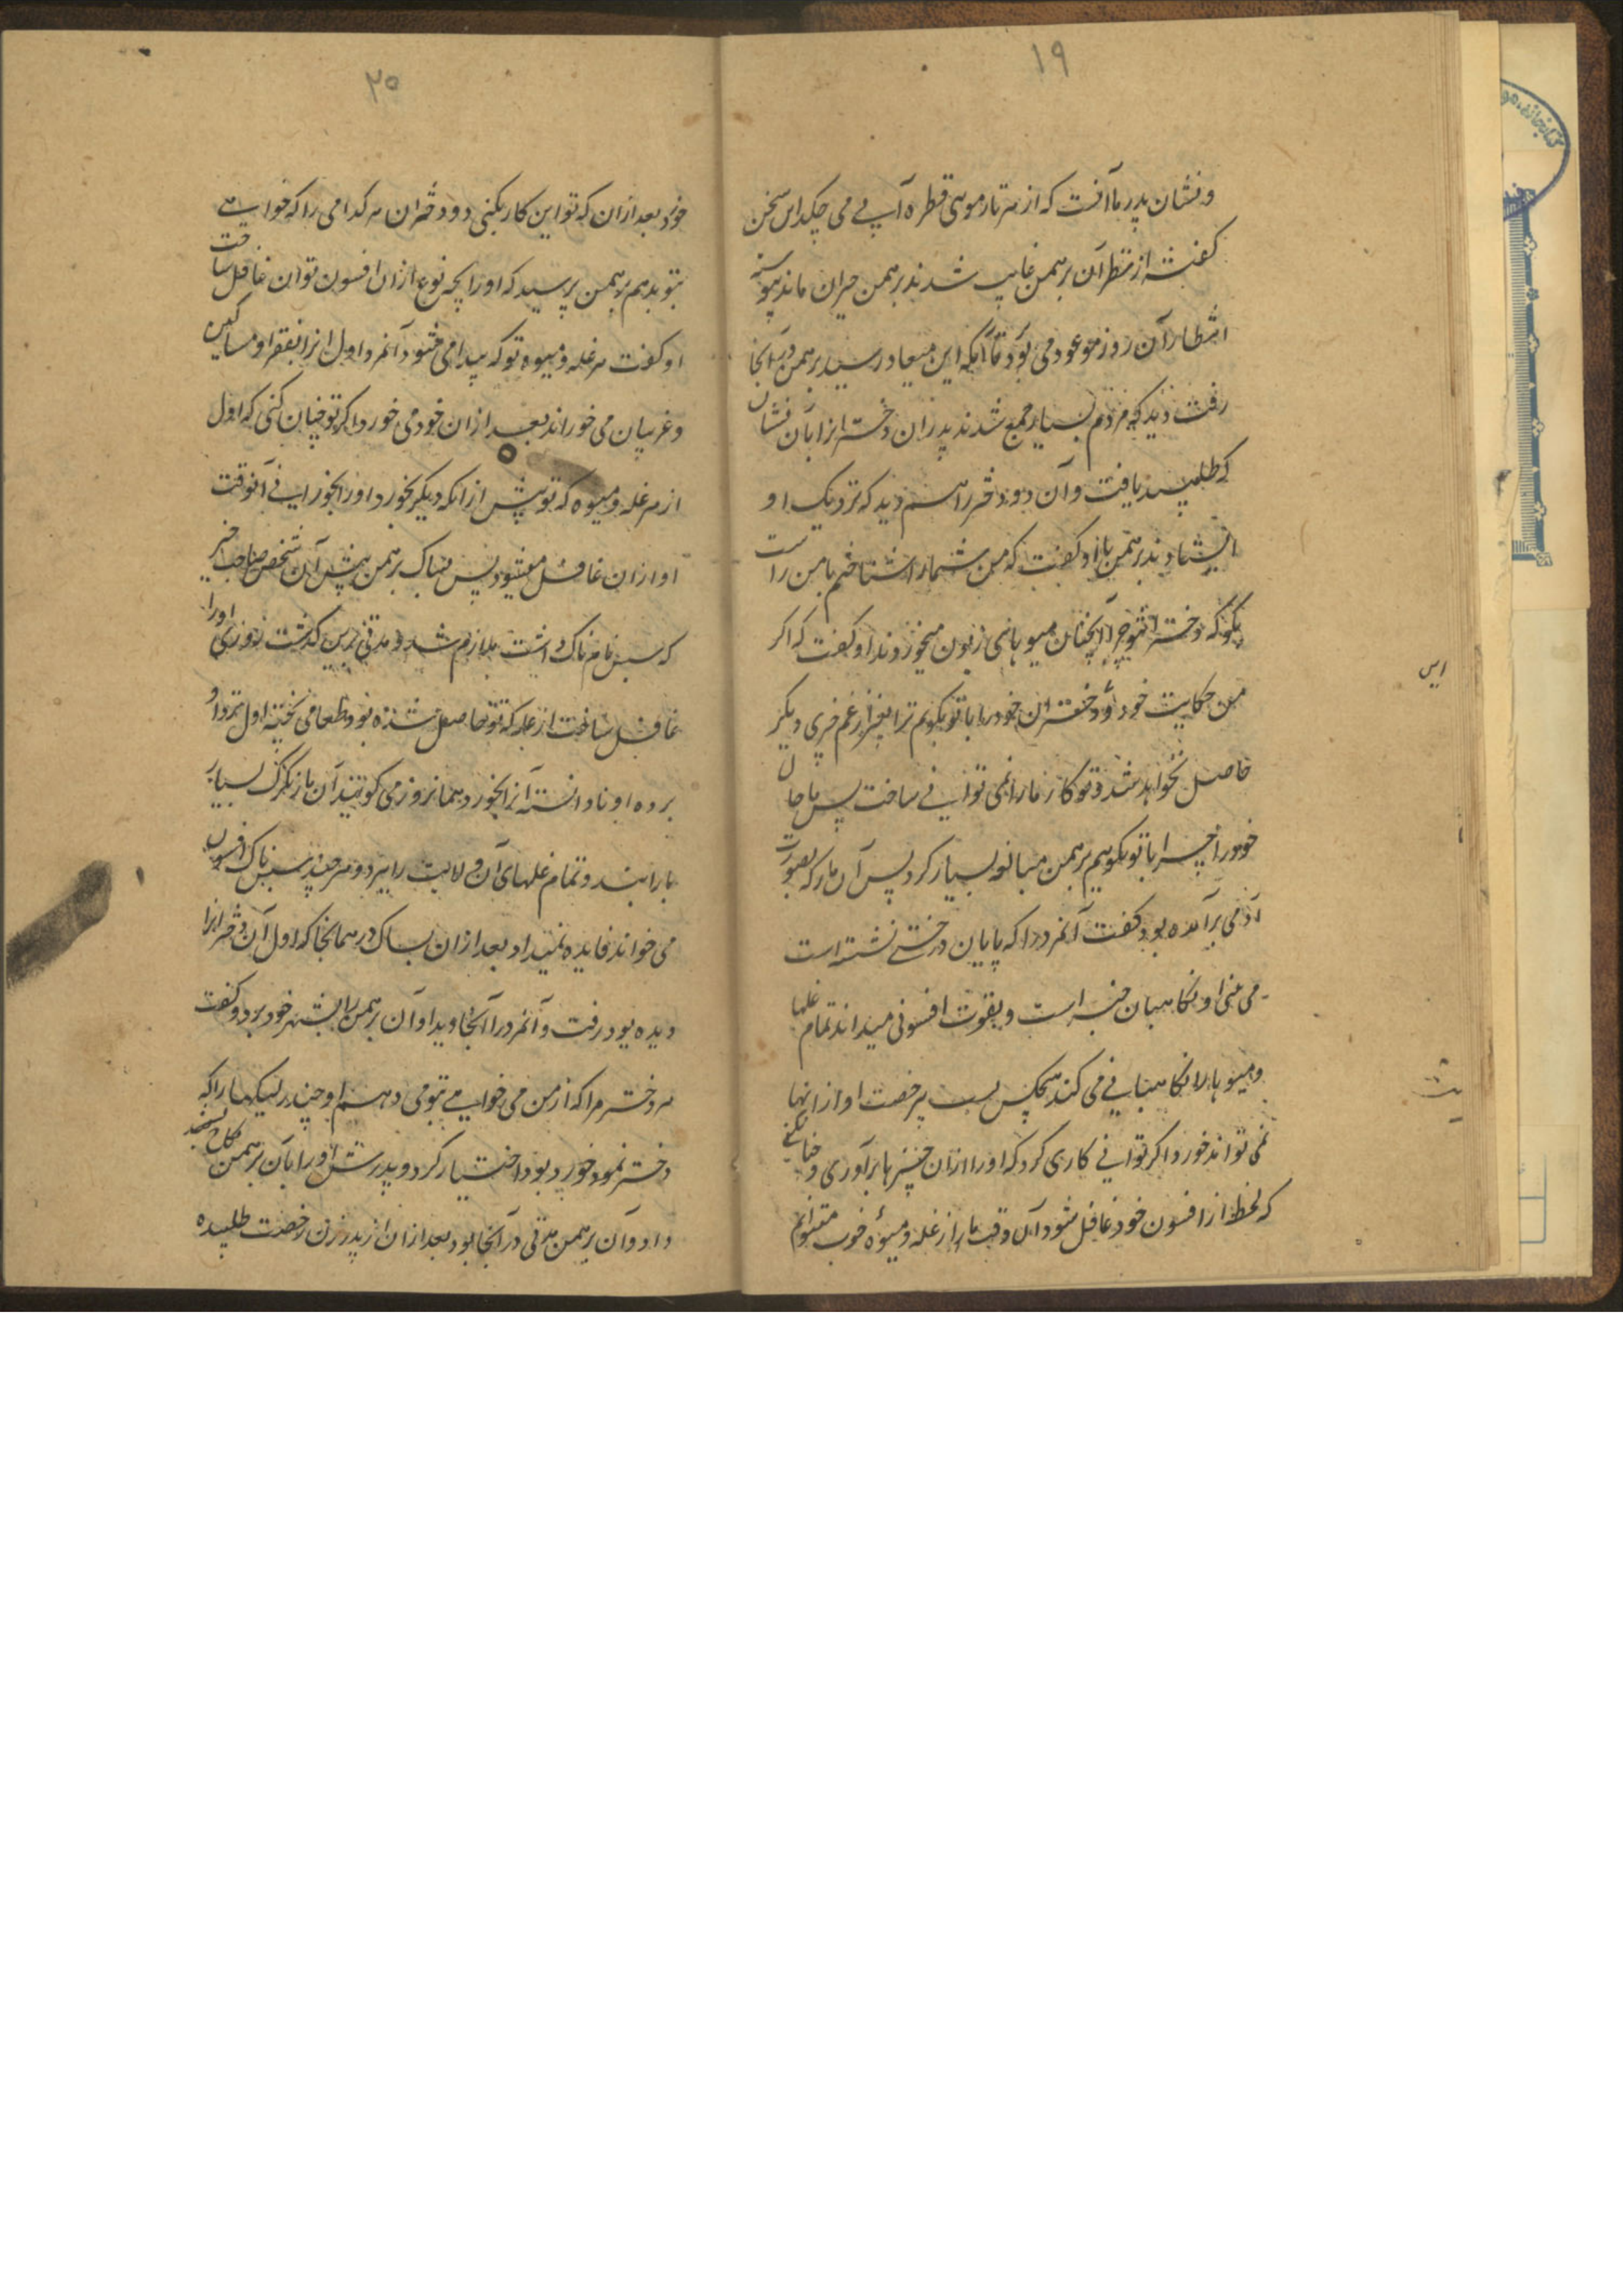 ۱۹
و نشان پدر ما آنست که از هر تار موی قطره آبے می چکد این سخن
گفته از نظر آن برهمن غایب شدند برهمن حیران ماند پیوسته
انتظار آن روز موعود می بود تا آنکه این میعاد رسید برهمن در آنجا
رفت دید که مردم بسیار جمع شدند پدر آن دختر از آن نشان
که طلبید یافت و آن دو دختر را هم دید که نزدیک او
ایستادند برهمن با او گفت که من شما را شناختم با من راست
بگو که دختر تو چرا آنچنان میوهای زبون میخوردند او گفت که اگر
من حکایت خود و دختران خود را با تو بگویم ترا بغیر از غم خوری دیگر
حاصل نخواهد شد و تو کار ما را نمی توانے ساخت پس ما حال
خود را چرا با تو بگوییم برهمن مبالغه بسیار کرد پس آن مار که بصورت
آدمی برآمده بود گفت آنمرد را که پایان درختے نشسته است
می بینی او نگاهبان است و بقوت افسونی میداند تمام غلها
و میوها را نگاهبانے می کند هیچکس بے رخصت او از انها
نمی تواند خورد اگر توانے کاری کرد که او را از آن چیزها برآوری و چنان کنے
که لحظه از افسون خود غافل شود آن وقت ما از غله و میوه خوب میتوانیم
این
۲۰
خورد بعد ازان که تو این کار بکنی دو دختران هر کدامی را که خواهے
بتو بدهم برهمن پرسید که او را بچه نوع ازان افسون توان غافل ساخت
او گفت هر غله و میوه نو که پیدا می شود آنمرد اول انرا بفقرا و مساکین
و غریبان می خوراند بعد ازان خود می خورد اگر تو چنان کنی که اول
از هر غله و میوه که نو پیش ازانکه دیگر بخورد او را بخورانے آنوقت
او ازان غافل میشود پس برهمن پیش آن شخص صاحب
که نام داشت ملازم شد و مدتی برین گذشت روزی او را
غافل ساخت از غله که نو حاصل شده بود و طعامی پخته اول نزد او
برده او نادانسته آنرا بخورد همانروز می گویند آن مار تگرگ بسیار
بارانید و تمام غلهای آن ولایت را ببرد و هر چند افسون
می خواند فایده نمیداد بعد ازان در همانجا که اول آن دختر انرا
دیده بود رفت و آنمرد را آنجا دید او آن برهمن را بشهر خود برد و گفت
هر دختر مرا که از من می خواهے بتو می دهم او
دختر نمود خورد بود اختیار کرد و پدرش او را بآن برهمن نکاح
داد و آن برهمن مدتی در آنجا بود بعد ازان از پدر زن رخصت طلبیده